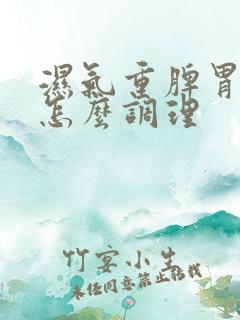 濕氣重脾胃
怎麼調理
竹宴小生
未经同意禁止转载